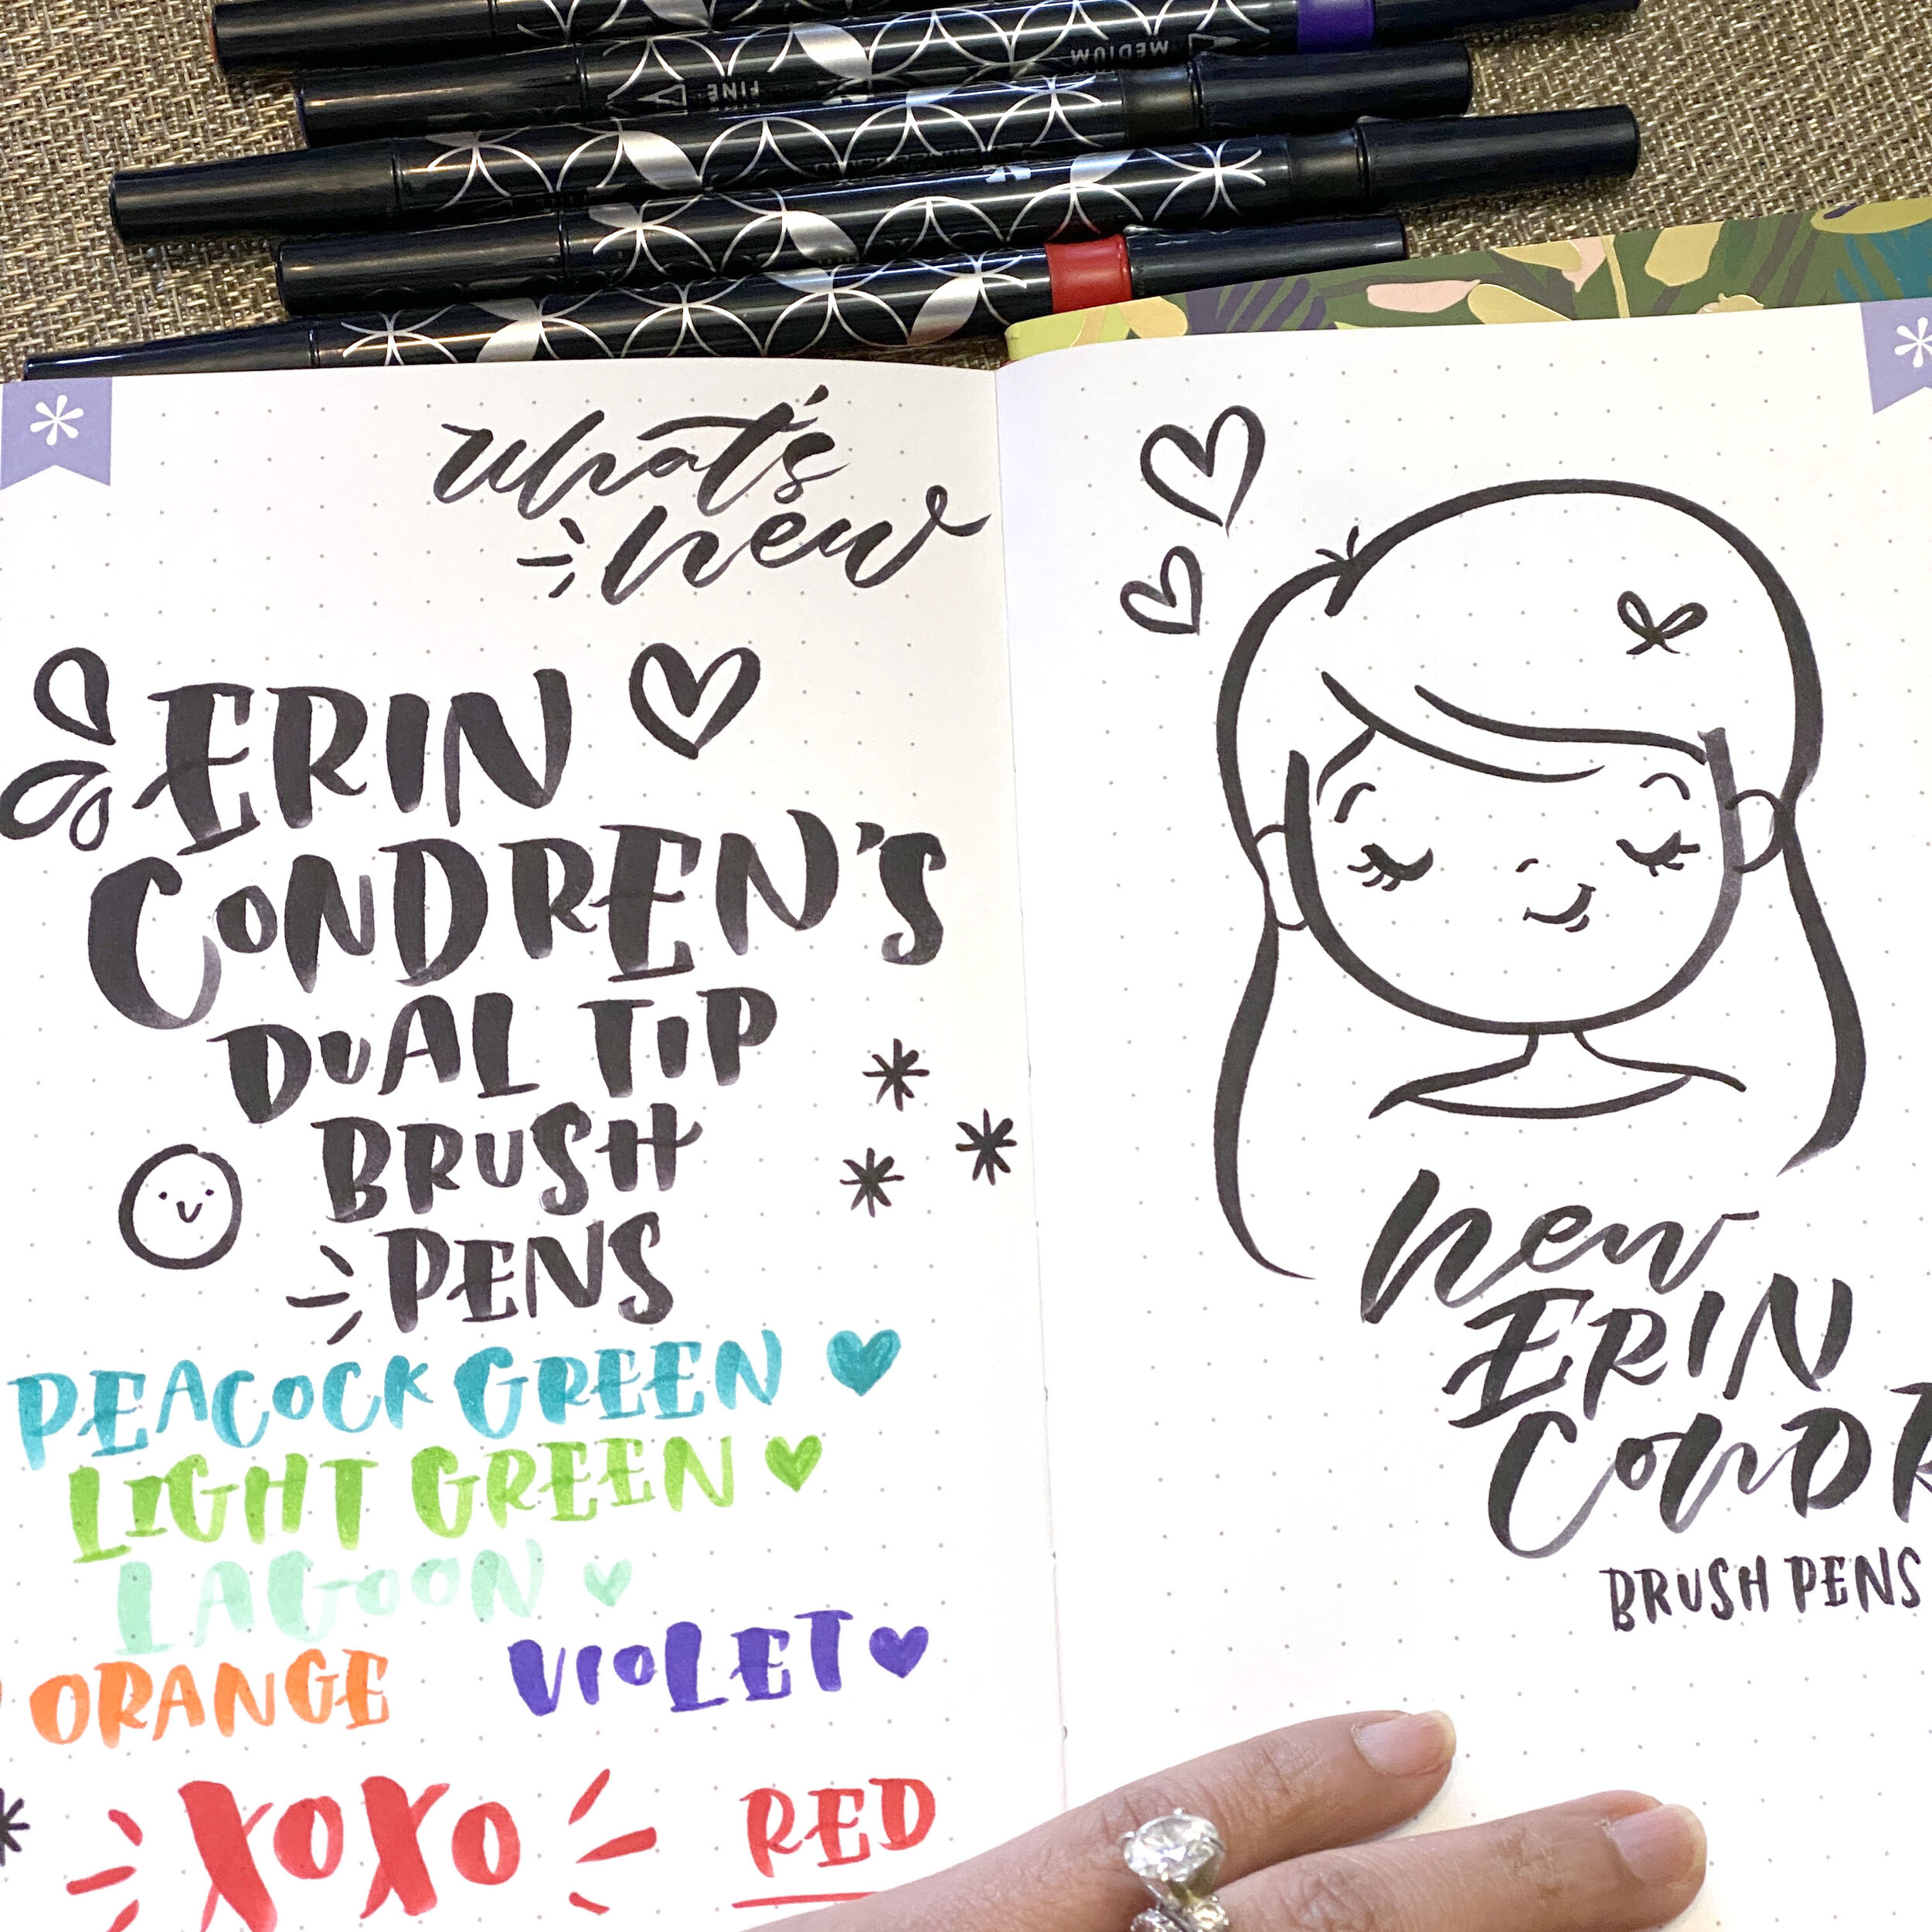 MEDIUM
FINE
what's
new
ERIN
CONDREN'S
DUAL TIP
BRUSH
PENS
PEACOCK GREEN
LIGHT GREEN
LAGOON
ORANGE VIOLET
XOXO RED
new
ERIN
BRUSH PENS